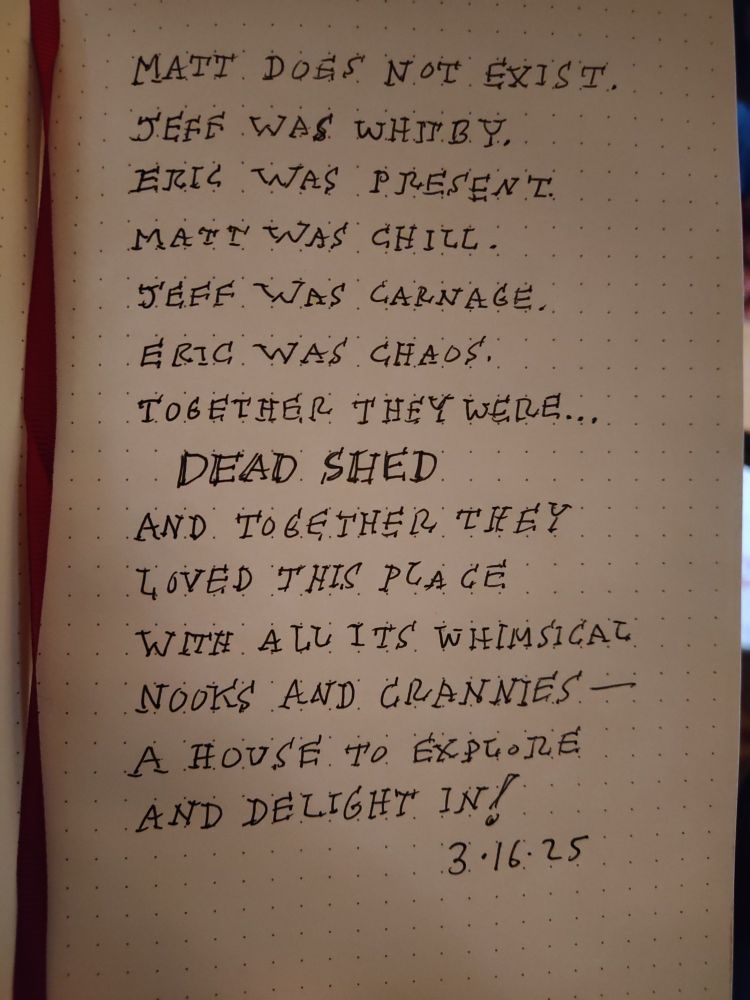 MATT DOES NOT EXIST.
JEFF WAS WHITBY.
ERIC WAS PRESENT.
MATT WAS CHILL.
JEFF WAS CARNAGE.
ERIC WAS CHAOS.
TOGETHER THEY WERE...
DEAD SHED
AND TOGETHER THEY
LOVED THIS PLACE
WITH ALL ITS WHIMSICAL
NOOKS AND CRANNIES—
A HOUSE TO EXPLORE
AND DELIGHT IN!
3·16·25